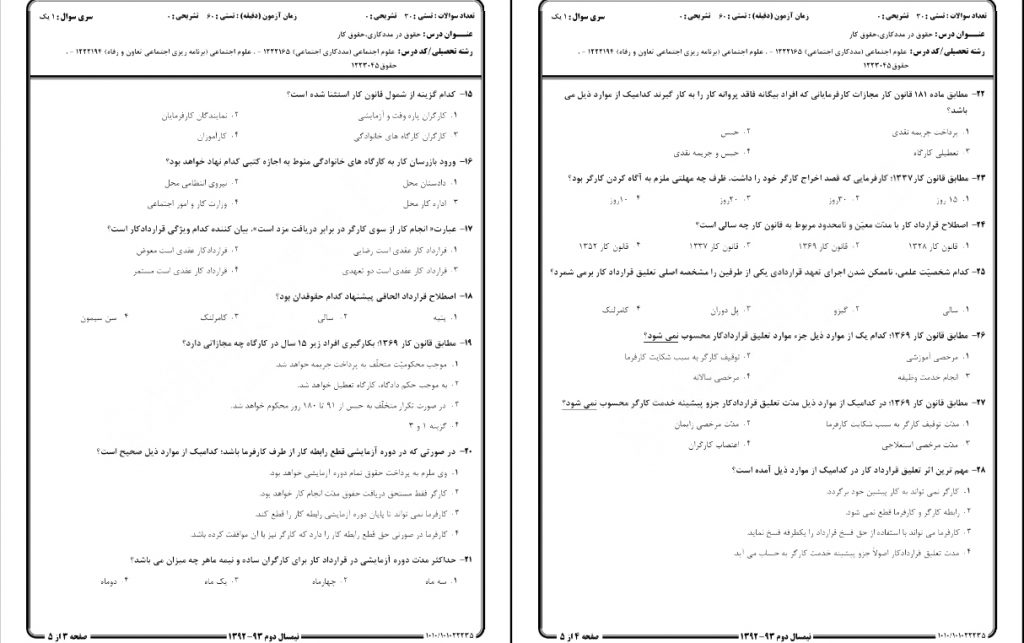 تعداد سوالات : تستی : ۳۰ تشریحی : ۰ زمان آزمون (دقیقه) : تستی : ۶۰ تشریحی : ۰ سری سوال : ۱ یک
عنـــوان درس : حقوق در مددکاری،حقوق کار
رشته تحصیلی/کد درس : علوم اجتماعی (مددکاری اجتماعی) ۱۲۲۲۱۶۵ - ، علوم اجتماعی (برنامه ریزی اجتماعی تعاون و رفاه) ۱۲۲۳۱۹۴ - ،
حقوق ۱۲۲۳۰۴۵
۱۵- کدام گزینه از شمول قانون کار استثنا شده است؟
۱. کارگران پاره وقت و آزمایشی ۲. نمایندگان کارفرمایان
۳. کارگران کارگاه های خانوادگی ۴. کارآموزان
۱۶- ورود بازرسان کار به کارگاه های خانوادگی منوط به اجازه کتبی کدام نهاد خواهد بود؟
۱. دادستان محل ۲. نیروی انتظامی محل
۳. اداره کار محل ۴. وزارت کار و امور اجتماعی
۱۷- عبارت« انجام کار از سوی کارگر در برابر دریافت مزد است»، بیان کننده کدام ویژگی قراردادکار است؟
۱. قرارداد کار عقدی است رضایی ۲. قراردادکار عقدی است معوض
۳. قرارداد کار عقدی است دو تعهدی ۴. قرارداد کار عقدی است مستمر
۱۸- اصطلاح قرارداد الحاقی پیشنهاد کدام حقوقدان بود؟
۱. پنیه ۲. سالی ۳. کامرلنک ۴. سن سیمون
۱۹- مطابق قانون کار ۱۳۶۹؛ بکارگیری افراد زیر ۱۵ سال در کارگاه چه مجازاتی دارد؟
۱. موجب محکومیّت متخلّف به پرداخت جریمه خواهد شد.
۲. به موجب حکم دادگاه، کارگاه تعطیل خواهد شد.
۳. در صورت تکرار متخلّف به حبس از ۹۱ تا ۱۸۰ روز محکوم خواهد شد.
۴. گزینه ۱ و ۳
۲۰- در صورتی که در دوره آزمایشی قطع رابطه کار از طرف کارفرما باشد؛ کدامیک از موارد ذیل صحیح است؟
۱. وی ملزم به پرداخت حقوق تمام دوره آزمایشی خواهد بود.
۲. کارگر فقط مستحق دریافت حقوق مدّت انجام کار خواهد بود.
۳. کارفرما نمی تواند تا پایان دوره ازمایشی رابطه کار را قطع کند.
۴. کارفرما در صورتی حق قطع رابطه کار را دارد که کارگر نیز با ان موافقت کرده باشد.
۲۱- حداکثر مدّت دوره آزمایشی در قرارداد کار برای کارگران ساده و نیمه ماهر چه میزان می باشد؟
۱. سه ماه ۲. چهارماه ۳. یک ماه ۴. دوماه
۱۰۱۰/۱۰۱۰۲۲۲۳۵ نیمسال دوم ۹۳-۱۳۹۲ صفحه ۳ از ۵
تعداد سوالات : تستی : ۳۰ تشریحی : ۰ زمان آزمون (دقیقه) : تستی : ۶۰ تشریحی : ۰ سری سوال : ۱ یک
عنـــوان درس : حقوق در مددکاری،حقوق کار
رشته تحصیلی/کد درس : علوم اجتماعی (مددکاری اجتماعی) ۱۲۲۲۱۶۵ - ، علوم اجتماعی (برنامه ریزی اجتماعی تعاون و رفاه) ۱۲۲۳۱۹۴ - ،
حقوق ۱۲۲۳۰۴۵
۲۲- مطابق ماده ۱۸۱ قانون کار مجازات کارفرمایانی که افراد بیگانه فاقد پروانه کار را به کار گیرند کدامیک از موارد ذیل می
باشد؟
۱. پرداخت جریمه نقدی ۲. حبس
۳. تعطیلی کارگاه ۴. حبس و جریمه نقدی
۲۳- مطابق قانون کار۱۳۳۷؛ کارفرمایی که قصد اخراج کارگر خود را داشت، ظرف چه مهلتی ملزم به آگاه کردن کارگر بود؟
۱. ۱۵ روز ۲. ۳۰روز ۳. ۲۰روز ۴. ۱۰روز
۲۴- اصطلاح قرارداد کار با مدّت معیّن و نامحدود مربوط به قانون کار چه سالی است؟
۱. قانون کار ۱۳۲۸ ۲. قانون کار ۱۳۶۹ ۳. قانون کار ۱۳۳۷ ۴. قانون کار ۱۳۵۲
۲۵- کدام شخصیّت علمی، ناممکن شدن اجرای تعهد قراردادی یکی از طرفین را مشخصه اصلی تعلیق قرارداد کار برمی شمرد؟
۱. سالی ۲. گیزو ۳. پل دوران ۴. کامرلنک
۲۶- مطابق قانون کار ۱۳۶۹؛ کدام یک از موارد ذیل جزء موارد تعلیق قراردادکار محسوب نمی شود؟
۱. مرخصی آموزشی ۲. توقیف کارگر به سبب شکایت کارفرما
۳. انجام خدمت وظیفه ۴. مرخصی سالانه
۲۷- مطابق قانون کار ۱۳۶۹؛ در کدامیک از موارد ذیل مدّت تعلیق قراردادکار جزو پیشینه خدمت کارگر محسوب نمی شود؟
۱. مدّت توقیف کارگر به سبب شکایت کارفرما ۲. مدّت مرخصی زایمان
۳. مدّت مرخصی استعلاجی ۴. اعتصاب کارگران
۲۸- مهم ترین اثر تعلیق قرارداد کار در کدامیک از موارد ذیل آمده است؟
۱. کارگر نمی تواند به کار پیشین خود برگردد.
۲. رابطه کارگر و کارفرما قطع نمی شود.
۳. کارفرما می تواند با استفاده از حق فسخ قرارداد را یکطرفه فسخ نماید.
۴. مدت تعلیق قراردادکار اصولاً جزو پیشینه خدمت کارگر به حساب می آید.
۱۰۱۰/۱۰۱۰۲۲۲۳۵ نیمسال دوم ۹۳-۱۳۹۲ صفحه ۴ از ۵